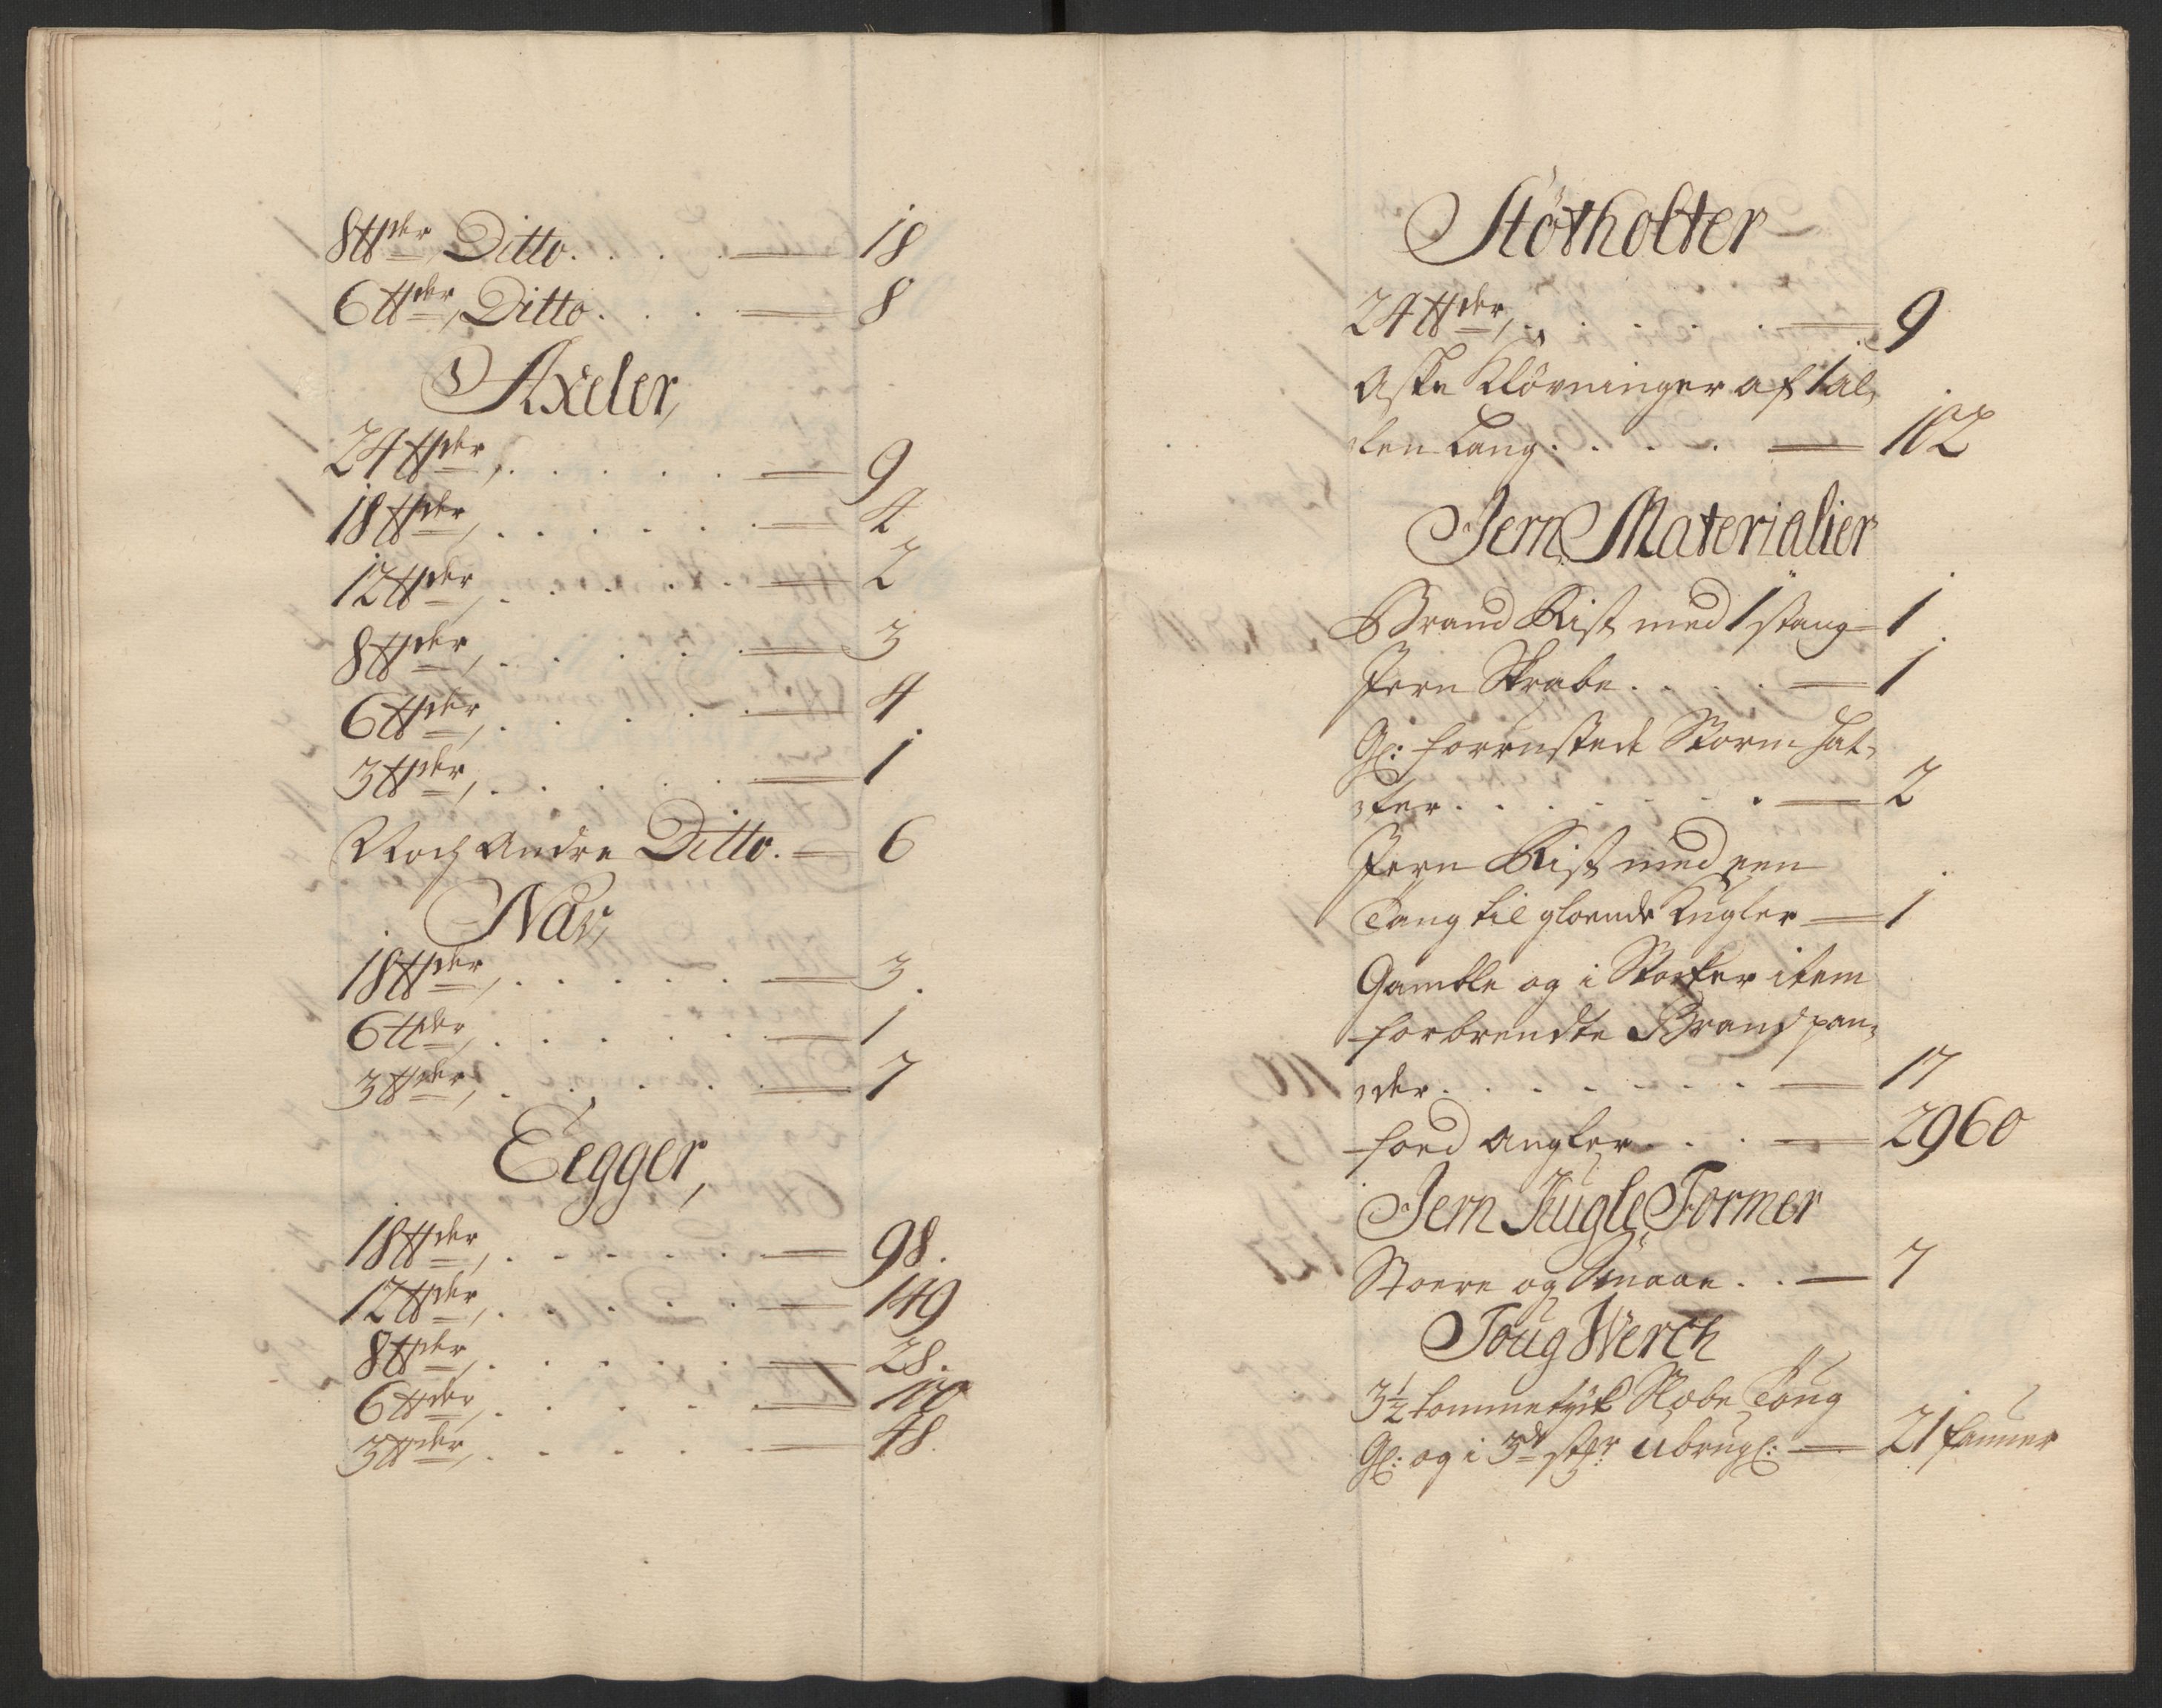 8 ℔der Ditto . . . . — 18
6 ℔der, Ditto . . . — 8
Axeler,
24 ℔der, . . . . . — 9
18 ℔der, . . . . . . — 4
12 ℔der, . . . . . — 2
8 ℔der, . . . . . — 3
6 ℔der, . . . . . — 4
3 ℔der, . . . . . — 1
Noch Andre Ditto. — 6
Nav,
18 ℔der, . . . . . — 3
6 ℔der, . . . . . — 1
3 ℔der, . . . . . — 7
Eegger,
18 ℔der, . . . . . . — 98.
12 ℔der, . . . . . — 149
8 ℔der, . . . . . . — 28.
6 ℔der, . . . . . — 100
3 ℔der, . . . . . — 48.
Stötholter
24 ℔der, . . . . . — 9
Aske Klövninger af 1 al,
len Lang . . . . — 102
Jern Materialier
Brand Rist med 1 stang — 1
Jern Skrabe . . . . — 1
Gl: forrustede Storm Hat,
ter . . . . . . . — 2
Jern Rist med een
Tang til gloende Kugler — 1
Gamble og i Stöcker item
forbrendte Brandpan,
der . . . . . . . — 17
foed Angler . . . — 2960
Jern Kugle Former
Stoere og Smaae . . — 7
Toug Werch
3½ tomme tyck Slæbe Toug
Gl: og i 3de stkr ubrugl: — 21 faune